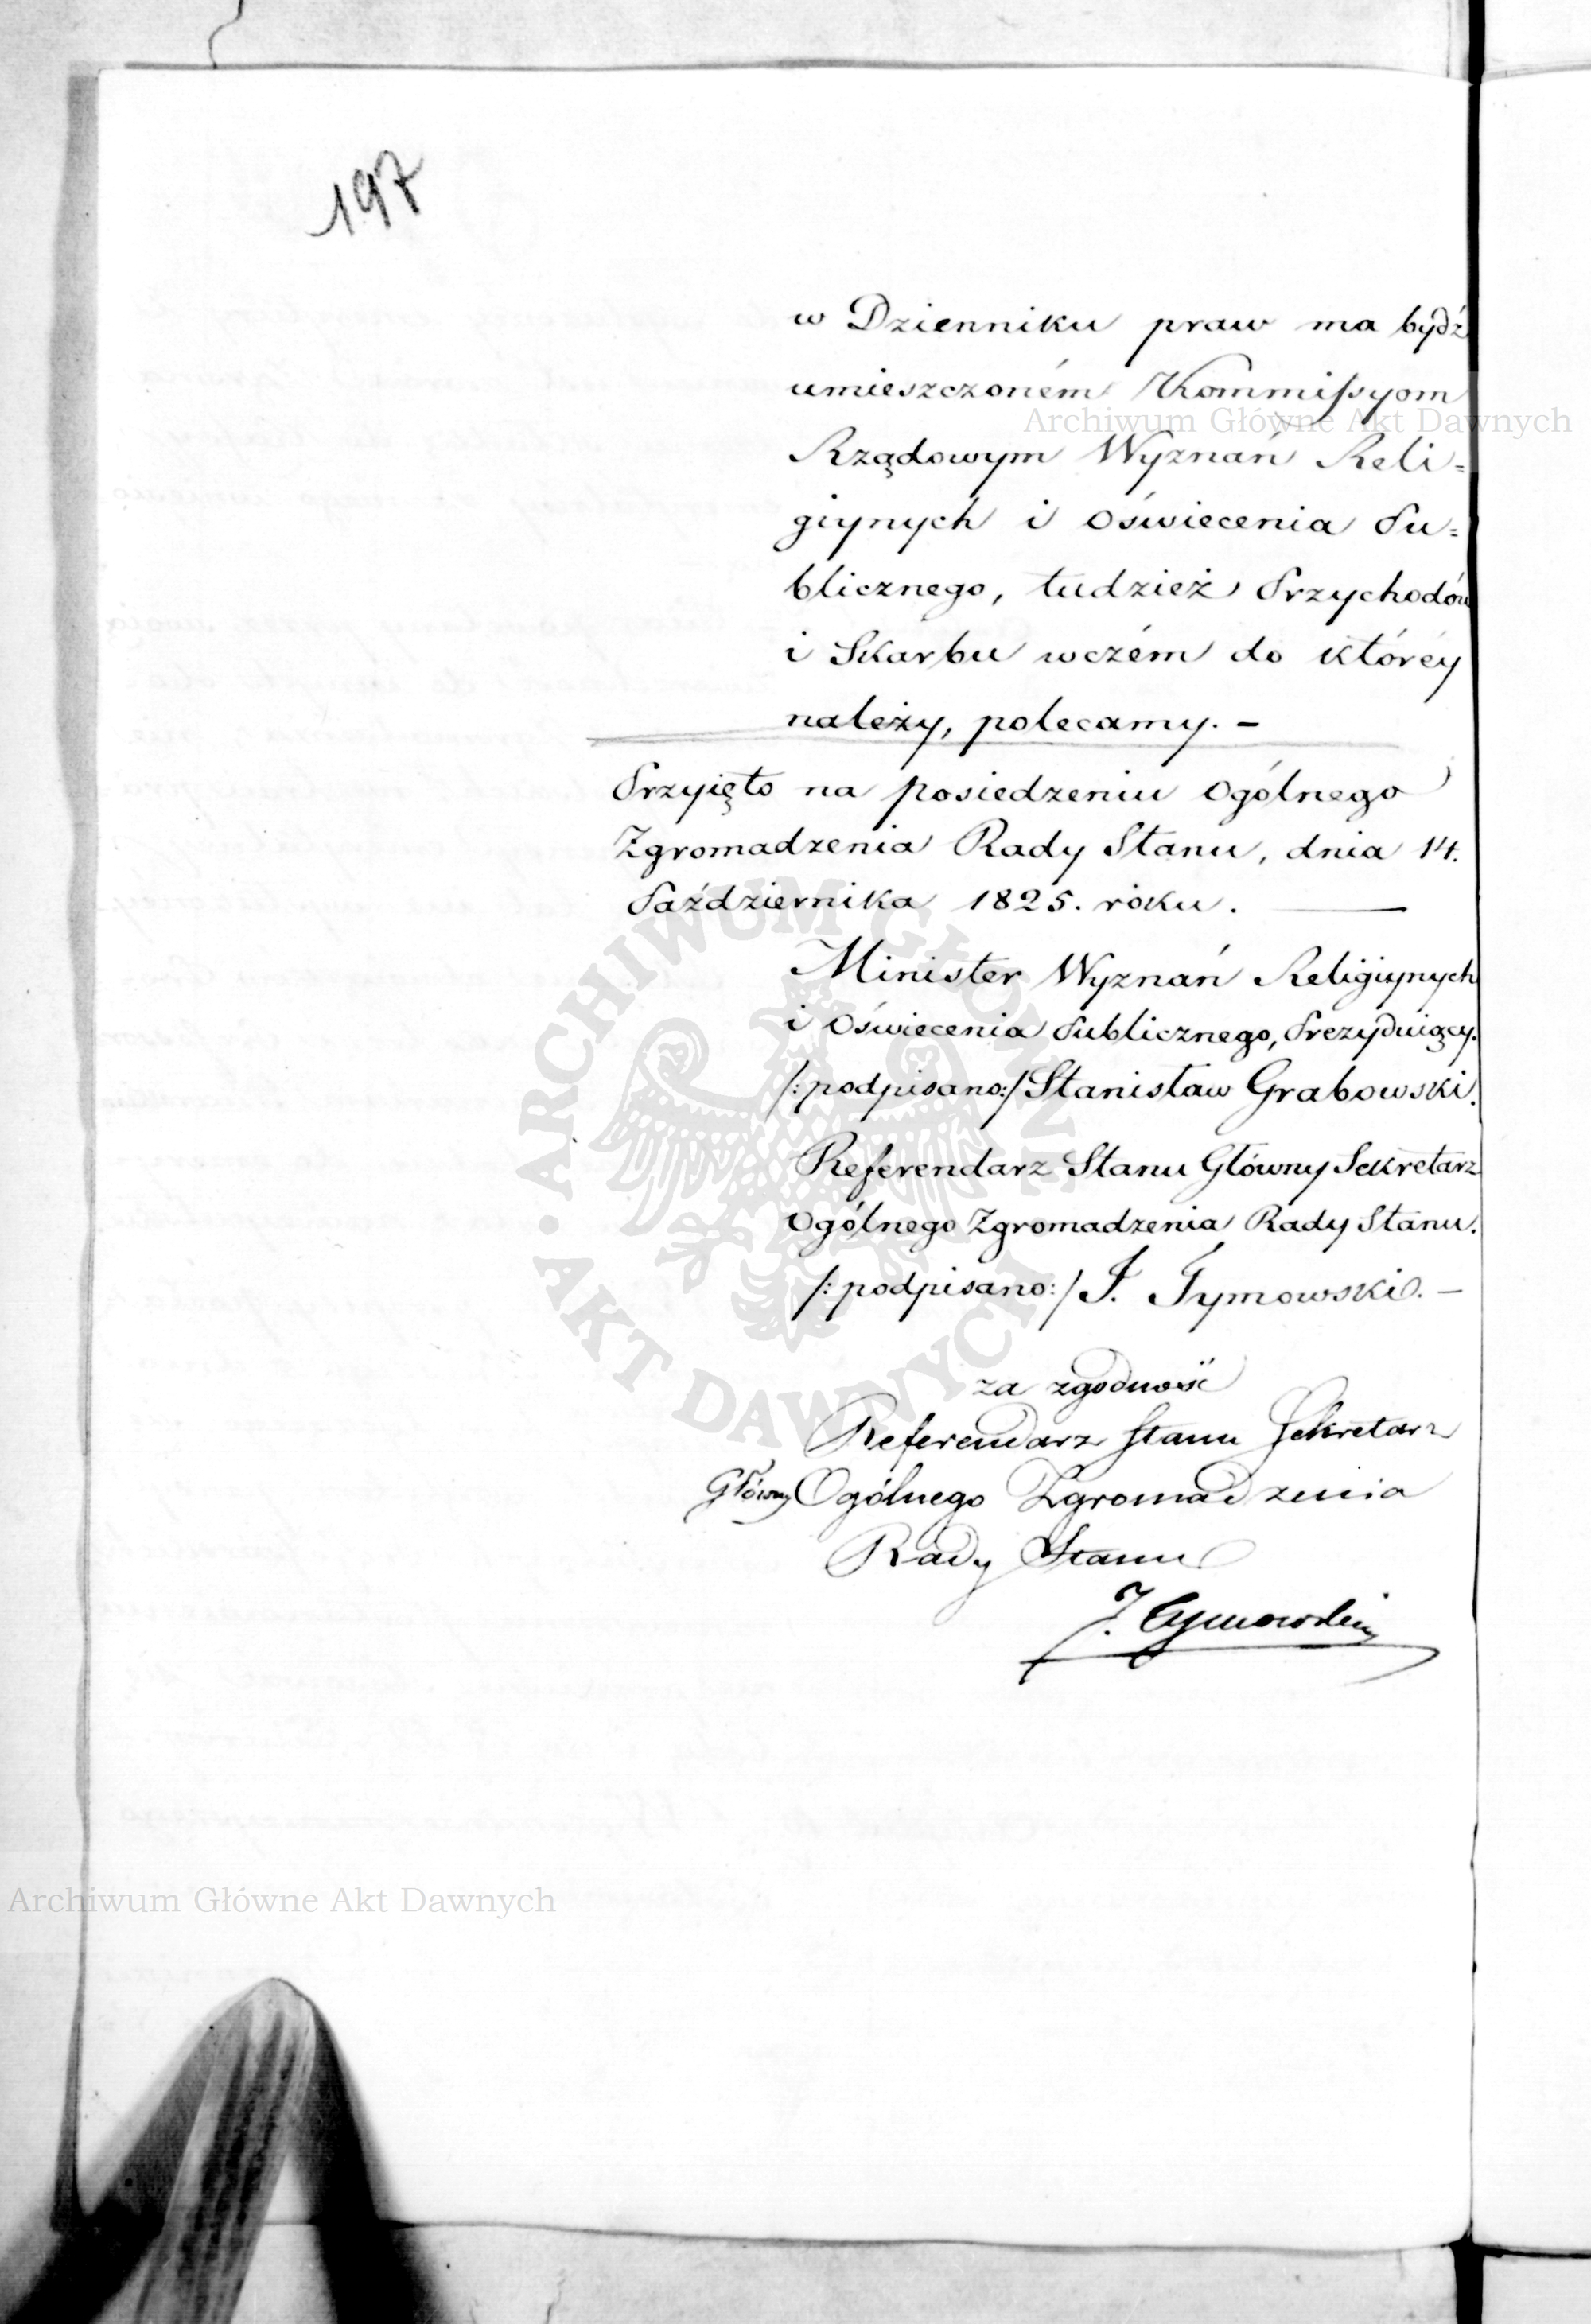 197
w Dzienniku praw ma bydź
umieszczoném Kommißyom
Rządowym Wyznań Reli=
giynych i Oświecenia Pu=
blicznego, tudzież Przychodów
i Skarbu wczém do któréy
należy, polecamy. –
Przyięto na posiedzeniu Ogólnego
Zgromadzenia Rady Stanu, dnia 14.
Października 1825. roku. —
Minister Wyznań Religiynych
i Oświecenia Publicznego, Prezyduiący.
/: podpisano:/ Stanisław Grabowski.
Referendarz Stanu Główny Sekretarz
Ogólnego Zgromadzenia Rady Stanu.
/: podpisano:/ J. Tymowski. –
za zgodność
Referendarz Stanu Sekretarz
Główny Ogólnego Zgromadzenia
Rady Stanu
J. Tymowski
Archiwum Główne Akt Dawnych
Archiwum Główne Akt Dawnych
· ARCHIWUM GŁÓWNE · AKT DAWNYCH